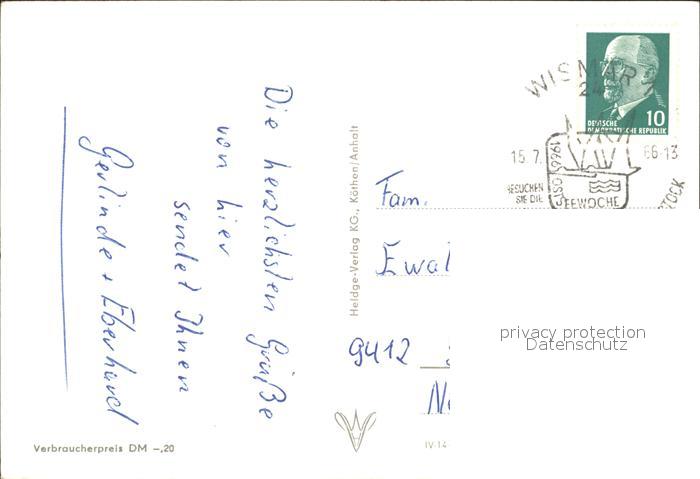 Die herzlichsten Grüße
von hier
sendet Ihnen
Gerlinde + Eberhard
Verbraucherpreis DM –,20
Heldge-Verlag KG., Köthen/Anhalt
IV-14
WISMAR 1
24
15.7. 66-13
BESUCHEN
SIE DIE
1966 OSTSEEWOCHE
DEUTSCHE
DEMOKRATISCHE REPUBLIK
10
Fam.
Ewal
9412
privacy protection
Datenschutz